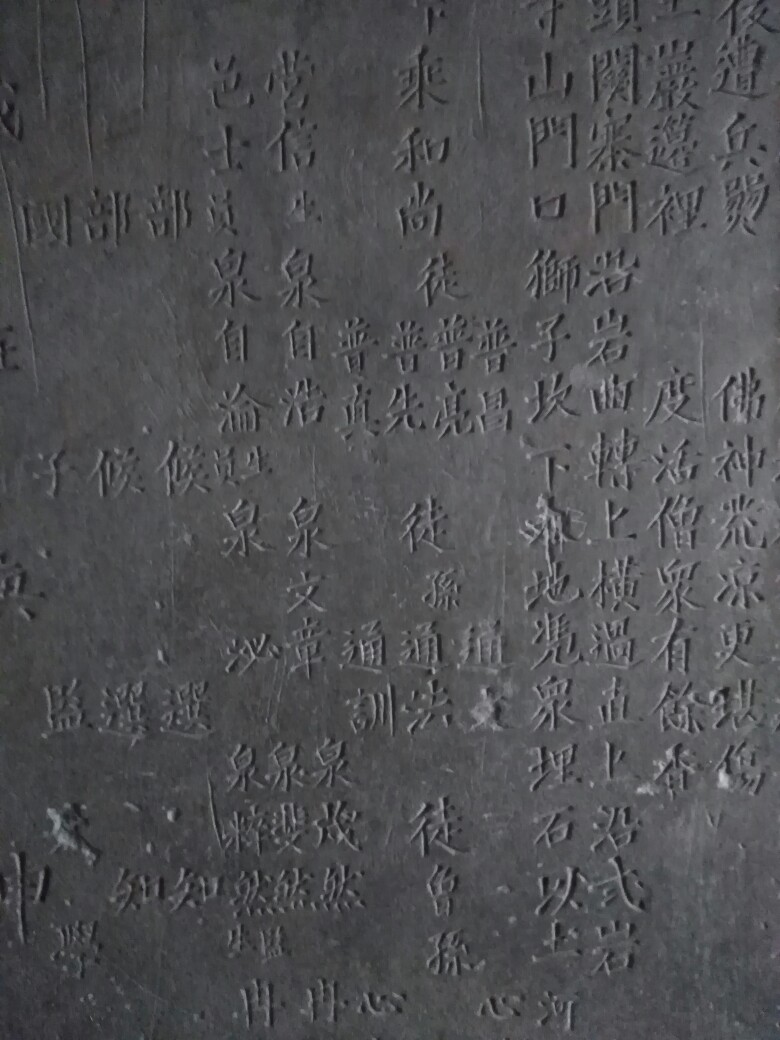 後遭兵燹
佛神光凉更
傷
上巖邊裡
度活僧衆有餘香
頭關寨門沿岩曲轉上橫過直上沿式岩
寺山門口獅子坎下
地憑衆埋石以上
河
普昌
通
心
普亮
下乘和尚
徒
普先
徒孫
通法
徒曾孫
普真
通訓
心
營信生
泉自浩
生員
泉文章
泉茂然
泉斐然
泉粹然
監生
冉
冉
邑士員
泉自淪
泉
泌
部
候
選
知
部
候
選
知
國
子
監
學